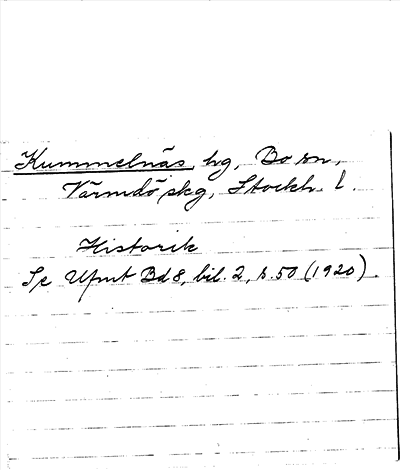 Kummelnäs, hg, Bo sn,
Värmdö skg, Stockh. l.
Historik
Se Upnt Bd 8, bil. 2, s. 50 (1920).